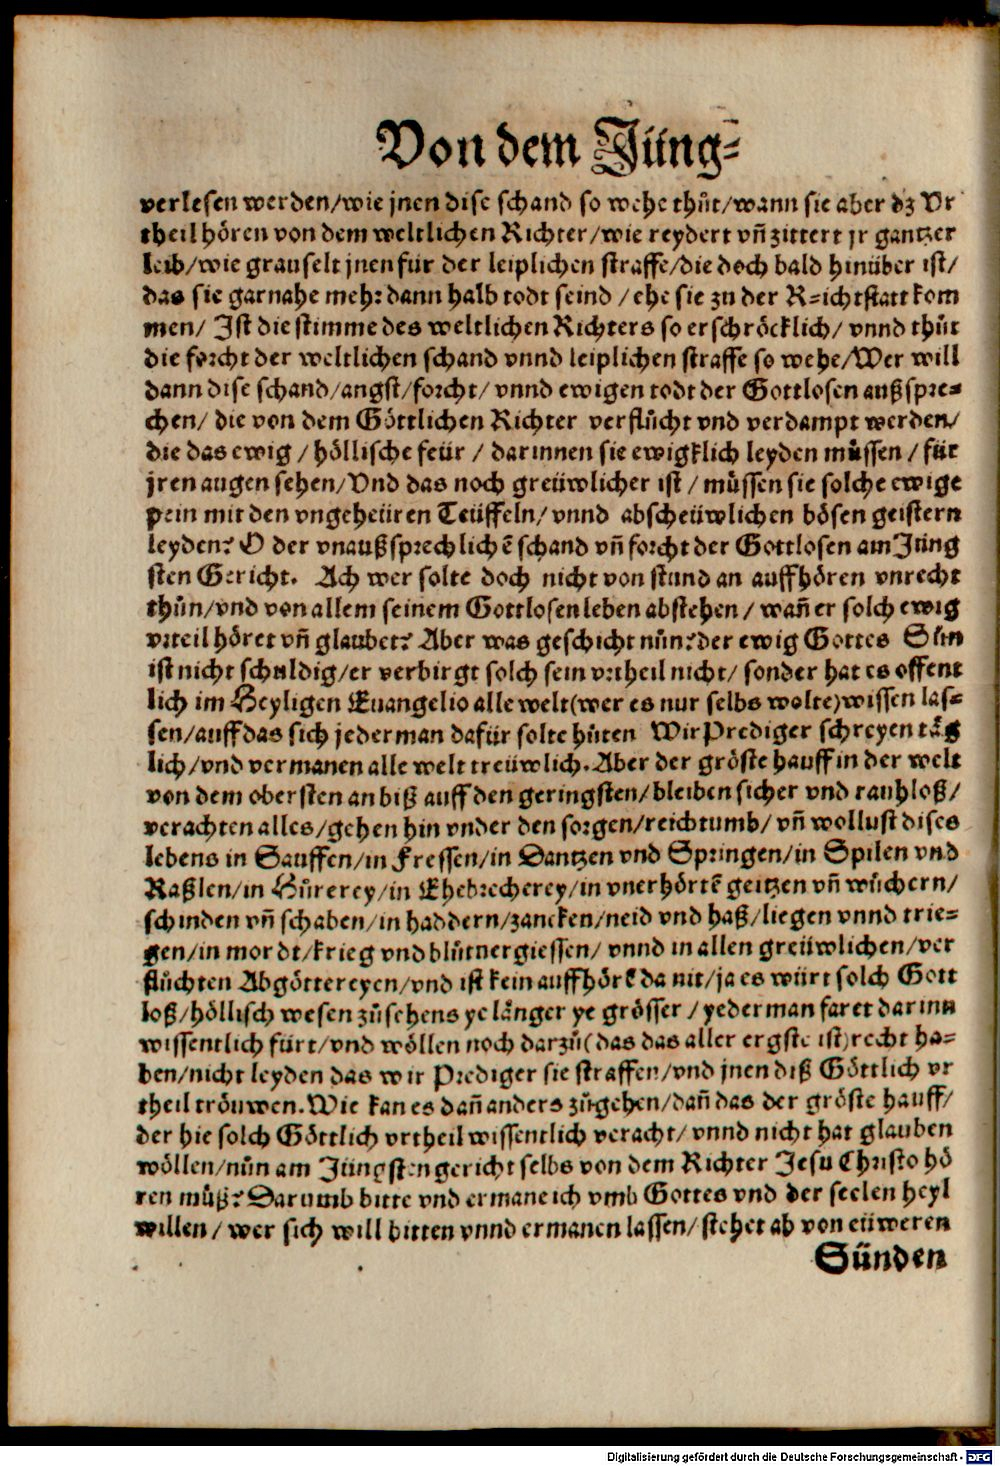 Von dem Jüng⸗
verlesen werden/wie jnen dise schand so wehe thůt/wann sie aber dz Vr
theil hören von dem weltlichen Richter/wie reydert vñ zittert jr gantzer
leib/wie grauselt jnen für der leiplichen straffe/die doch bald hinüber ist/
das sie gar nahe mehr dann halb todt seind /ehe sie zu der R⸗ichtstatt kom
men/ Ist die stimme des weltlichen Richters so erschröcklich/ vnnd thůt
die forcht der weltlichen schand vnnd leiplichen straffe so wehe/Wer will
dann dise schand/angst/forcht/ vnnd ewigen todt der Gottlosen außspre⸗
chen/ die von dem Göttlichen Richter verflůcht vnd verdampt werden/
die das ewig / höllische feür / darinnen sie ewigklich leyden müssen / für
jren augen sehen/Vnd das noch greüwlicher ist / müssen sie solche ewige
pein mit den vngeheüren Teüffeln/ vnnd abscheüwlichen bösen geistern
leyden? O der vnaußsprechlichẽ schand vñ forcht der Gottlosen am Jüng
sten Gericht. Ach wer solte doch nicht von stund an auffhören vnrecht
thůn/vnd von allem seinem Gottlosen leben abstehen / wañ er solch ewig
vrteil höret vñ glaubet? Aber was geschicht nůn? der ewig Gottes Sůn
ist nicht schuldig/er verbirgt solch sein vrtheil nicht/ sonder hat es offent
lich im Heyligen Euangelio alle welt(wer es nur selbs wolte)wissen las⸗
sen/auff das sich jederman dafür solte hüten Wir Prediger schreyen täg
lich/vnd vermanen alle welt treüwlich. Aber der gröste hauff in der welt
von dem obersten an biß auff den geringsten/bleiben sicher vnd rauhloß/
verachten alles/gehen hin vnder den sorgen/reichtumb/ vñ wollust dises
lebens in Sauffen/in Fressen/in Dantzen vnd Springen/in Spilen vnd
Raßlen/in Hůrerey/in Ehebrecherey/in vnerhörtẽ geitzen vñ wůchern/
schinden vñ schaben/in haddern/zancken/neid vnd haß/liegen vnnd trie⸗
gen/in mordt/krieg vnd blůtuergiessen/ vnnd in allen greüwlichen/ver
flůchten Abgöttereyen/vnd ist kein auffhörẽ da nit/ja es würt solch Gott
loß/höllisch wesen zůsehens ye länger ye grösser /yederman faret darinn
wissentlich fürt/vnd wöllen noch darzů(das das aller ergste ist)recht ha⸗
ben/nicht leyden das wir Prediger sie straffen/vnd jnen diß Göttlich vr
theil tröuwen. Wie kan es dañ anders zůgehen/dañ das der gröste hauff/
der hie solch Göttlich vrtheil wissentlich veracht/ vnnd nicht hat glauben
wöllen/nůn am Jüngsten gericht selbs von dem Richter Jesu Christo hö
ren můß? Darumb bitte vnd ermane ich vmb Gottes vnd der seelen heyl
willen/ wer sich will bitten vnnd ermanen lassen/ stehet ab von eüweren
Sünden
Digitalisierung gefördert durch die Deutsche Forschungsgemeinschaft - DFG